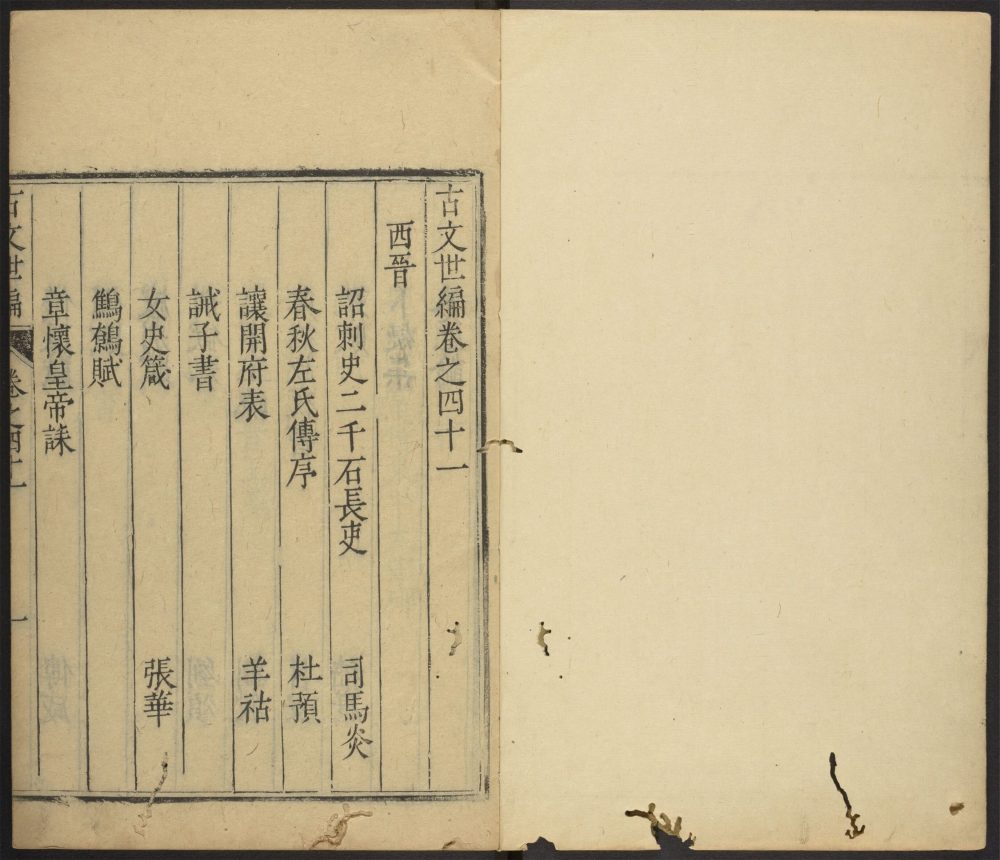 古文世編卷之四十一
西晉
詔刺史二千石長吏 司馬炎
春秋左氏傳序 杜預
讓開府表 羊祜
誡子書
女史箴 張華
鷦鷯賦
章懷皇帝誄
古文世編 卷之四十一 一